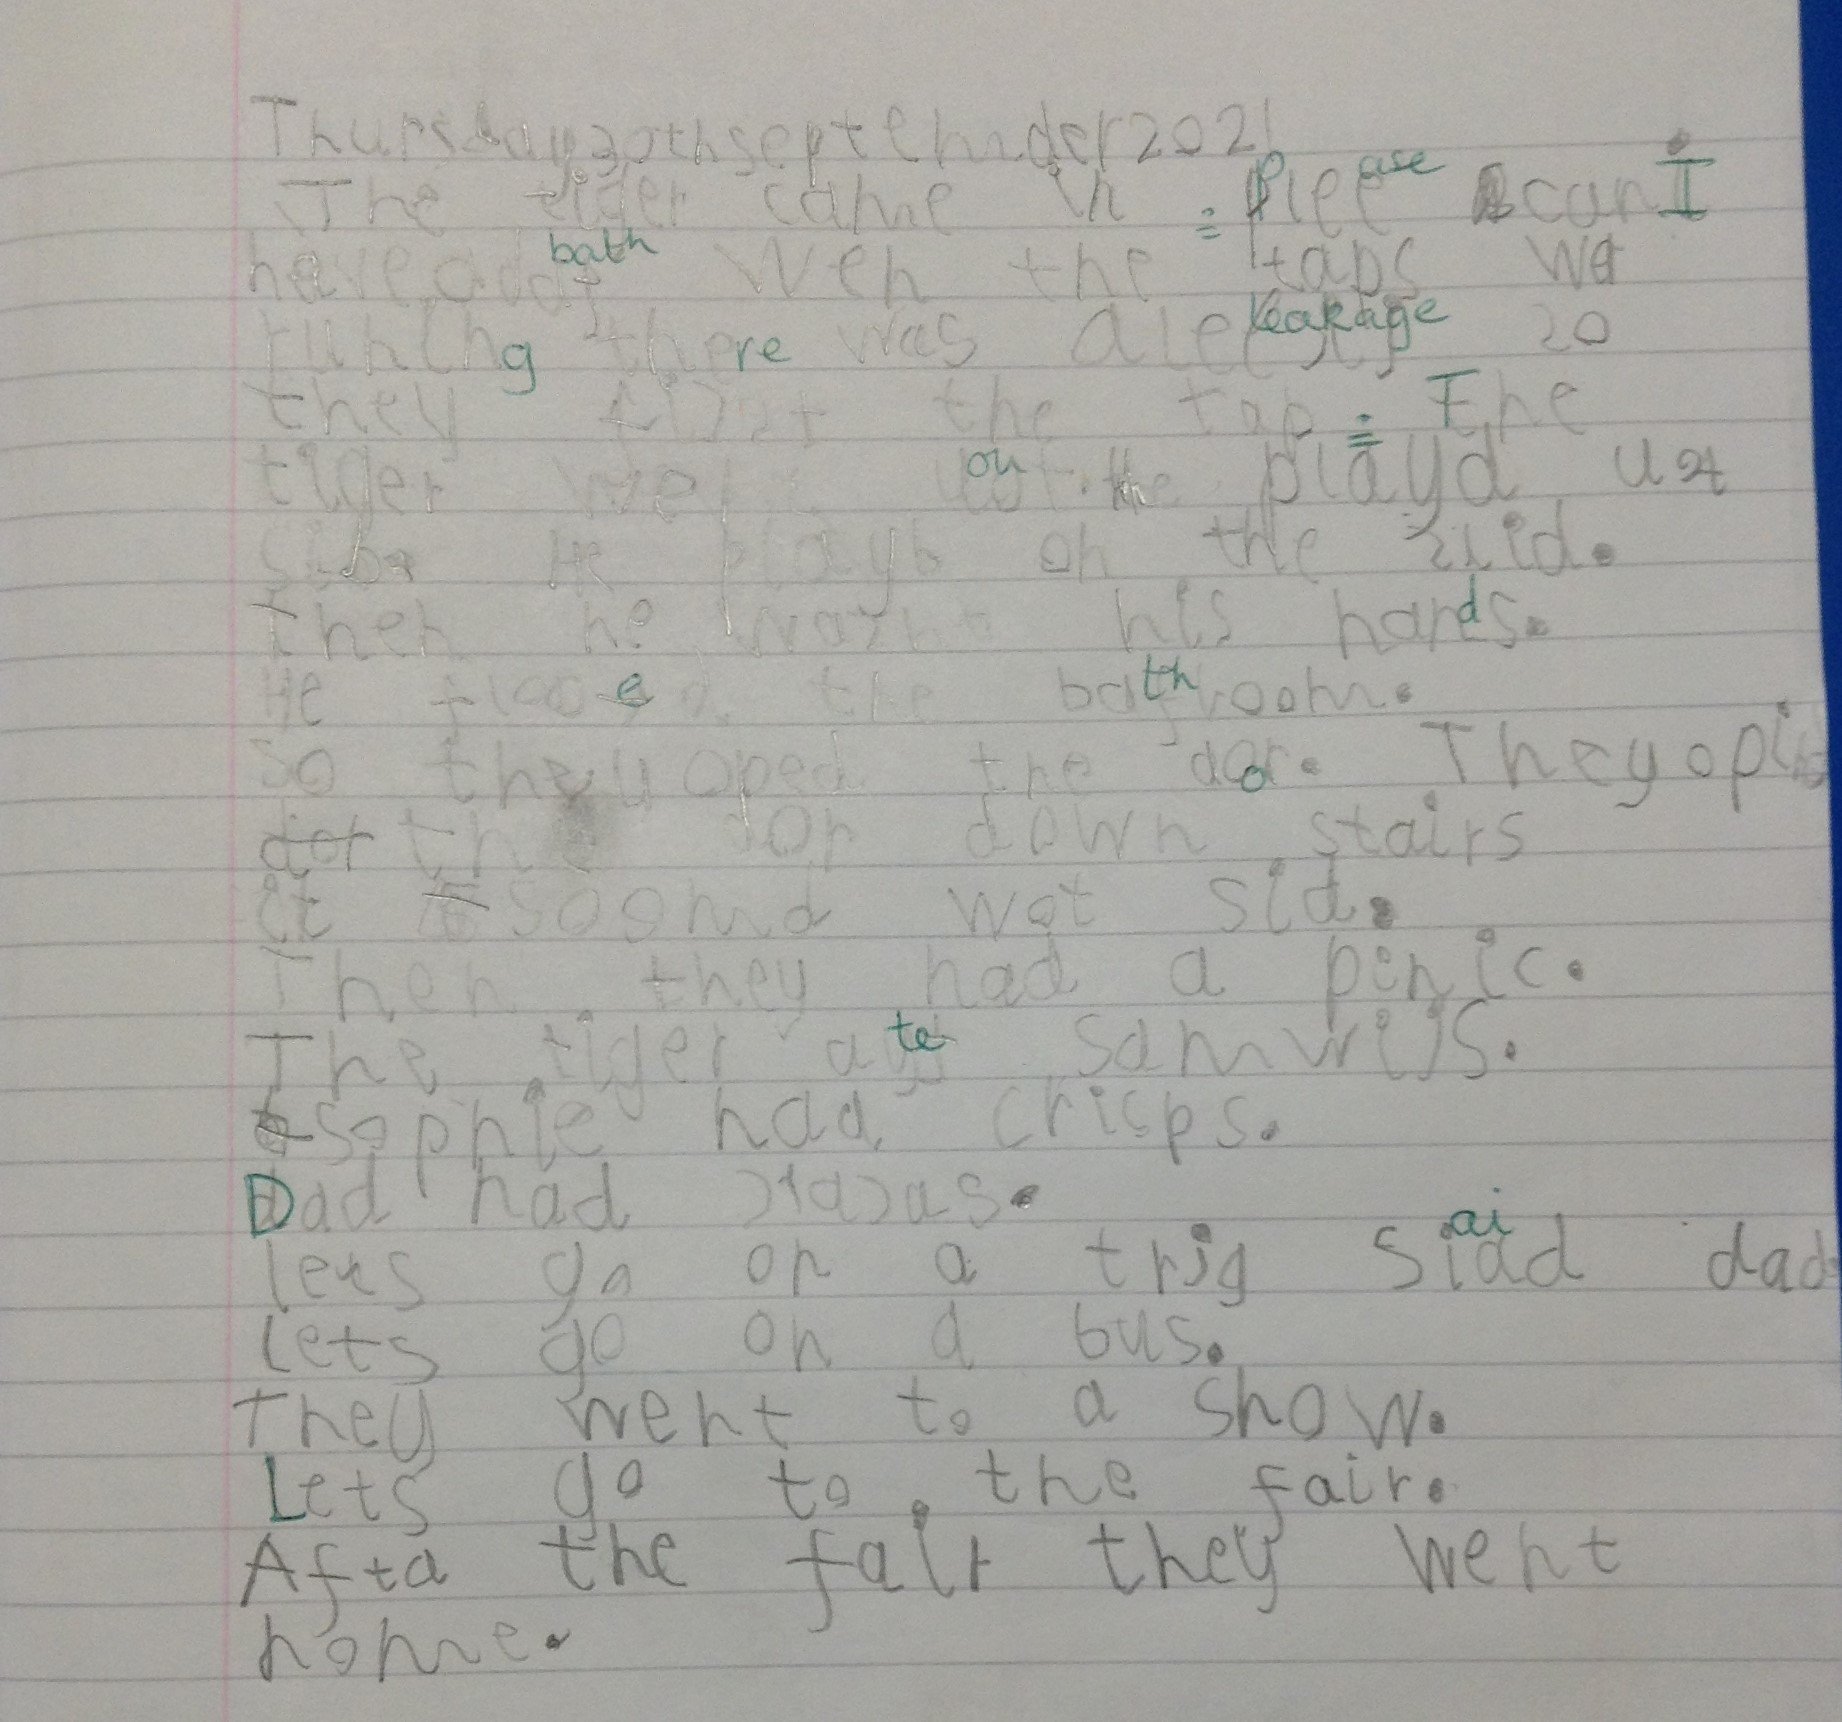 Thursday30thseptemder2021
The tiger came in . Plee ase can I
have a bath Wen the taps We
runing there was a leakage 20
they the tap. The
tiger on the playd
He playb on the slid.
Then he his hands.
He the bathroom.
So they oped the door. They
dor the dor down stairs
it soomd wot sid.
Then they had a penic.
The tiger ate samwijs.
sophie had crisps.
Dad had
lets go on a trig siad dad
lets go on a bus.
They went to a show.
Lets go to the fair.
Afta the fair they went
home.